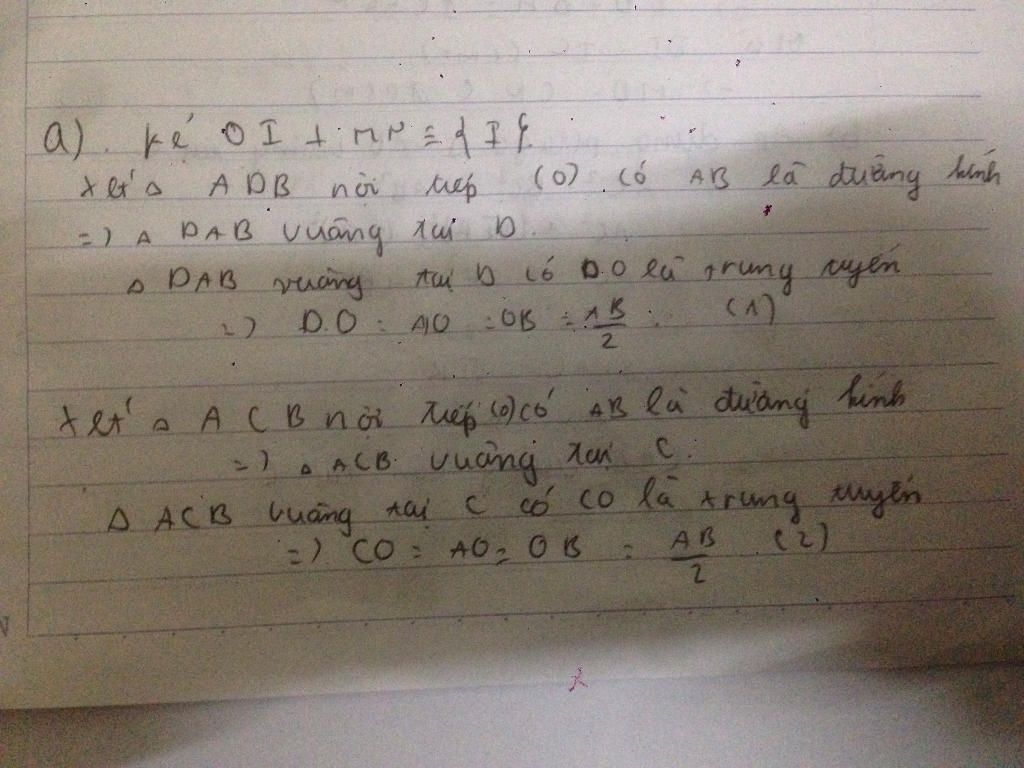 a). Kẻ OI ⊥ MN ≡ {I}.
Xét △ ADB nội tiếp (O) có AB là đường kính
=) △ DAB vuông tại D.
△ DAB vuông tại D có DO là trung tuyến
=) DO = AO = OB = AB/2. (1)
Xét △ ACB nội tiếp (O) có AB là đường kính
=) △ ACB vuông tại C.
△ ACB vuông tại C có CO là trung tuyến
=) CO = AO = OB = AB/2 (2)